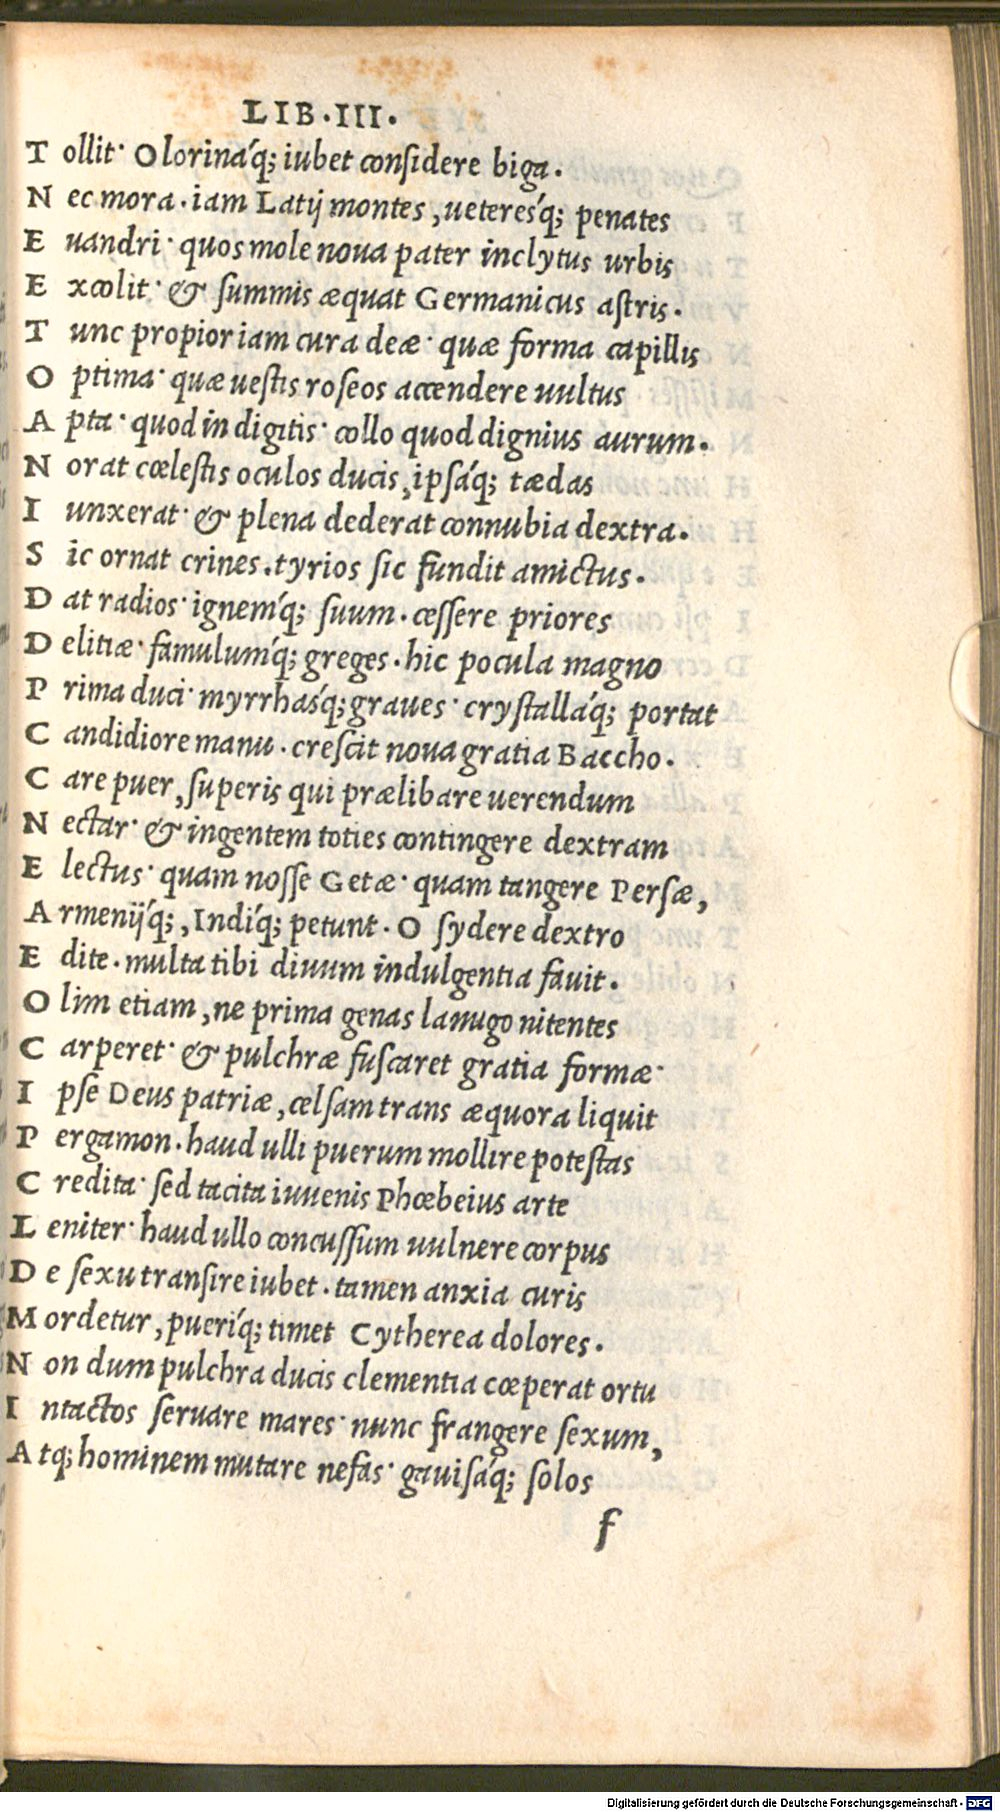 LIB.III.
T ollit· Olorináq; iubet considere biga.
N ec mora. iam Latij montes, ueteresq́; penates
E uandri· quos mole noua pater inclytus urbis
E xcolit· & summis æquat Germanicus astris.
T unc propior iam cura deæ· quæ forma capillis
O ptima· quæ uestis roseos accendere uultus
A pta· quod in digitis· collo quod dignius aurum.
N orat cœlestis oculos ducis, ipsáq; tædas
I unxerat· & plena dederat connubia dextra.
S ic ornat crines. tyrios sic fundit amictus.
D at radios· ignemq́; suum. cessere priores
D elitiæ· famulumq́; greges. hic pocula magno
P rima duci· myrrhasq́; graues· crystalláq; portat
C andidiore manu. crescit noua gratia Baccho.
C are puer, superis qui prælibare uerendum
N ectar· & ingentem toties contingere dextram
E lectus· quam nosse Getæ· quam tangere Persæ,
A rmenijq́;, Indiq́; petunt. O sydere dextro
E dite. multa tibi diuum indulgentia fauit.
O lim etiam, ne prima genas lanugo nitentes
C arperet· & pulchræ fuscaret gratia formæ·
I pse Deus patriæ, celsam trans æquora liquit
P ergamon. haud ulli puerum mollire potestas
C redita· sed tacita iuuenis Phœbeius arte
L eniter· haud ullo concussum uulnere corpus
D e sexu transire iubet. tamen anxia curis
M ordetur, pueriq́; timet Cytherea dolores.
N on dum pulchra ducis clementia cœperat ortu
I ntactos seruare mares· nunc frangere sexum,
A tq; hominem mutare nefas· gauisáq; solos
f
Digitalisierung gefördert durch die Deutsche Forschungsgemeinschaft - DFG